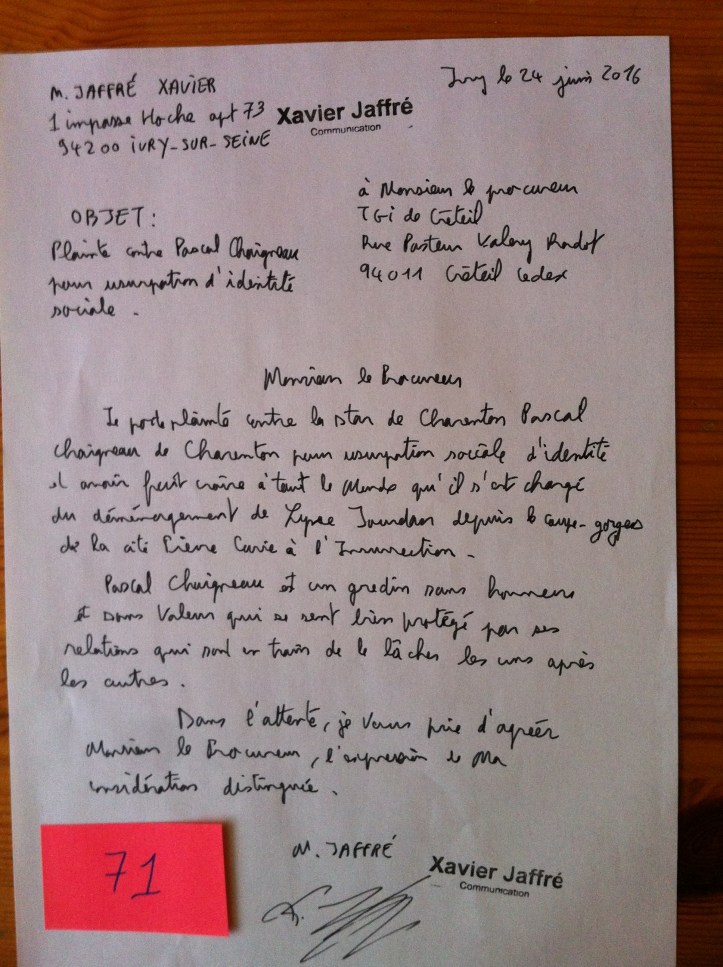 M. JAFFRÉ XAVIER
Ivry le 24 juin 2016
1 impasse Hoche apt 73
Xavier Jaffré
Communication
94200 IVRY-SUR-SEINE
à Monsieur le procureur
TGI de Créteil
Rue Pasteur Valery Radot
94011 Créteil Cedex
OBJET :
Plainte contre Pascal Chaigneau
pour usurpation d'identité
sociale .
Monsieur le Procureur
Je porte plainte contre la star de Charenton Pascal
Chaigneau de Charenton pour usurpation sociale d'identité
et avoir fait croire à tout le Monde qu'il s'est chargé
du déménagement de Lysae Jourdran depuis le coupe-gorges
de la cité Pierre Curie à l'Insurrection -
Pascal Chaigneau est un gredin sans honneur
et sans Valeur qui se sent bien protégé par ses
relations qui sont en train de le lâcher les uns après
les autres .
Dans l'attente, je vous prie d'agréér
Monsieur le Procureur, l'expression de Ma
considération distinguée .
M. JAFFRÉ
Xavier Jaffré
Communication
71